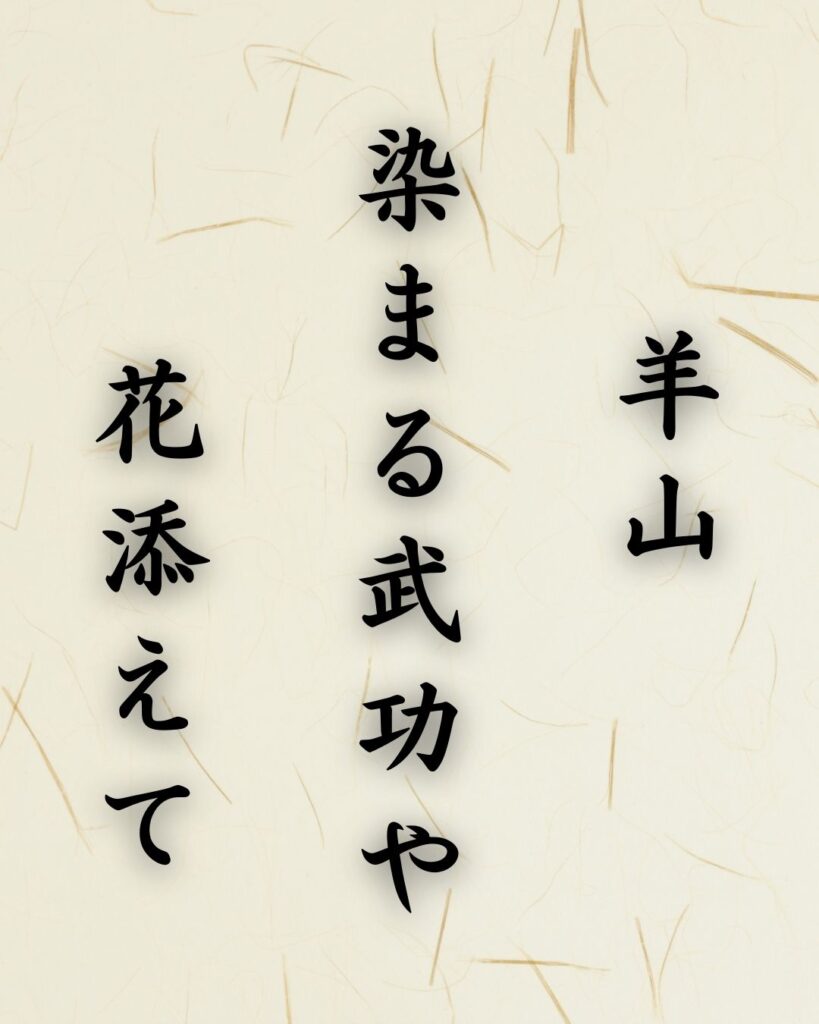 羊山
染まる武功や
花添えて